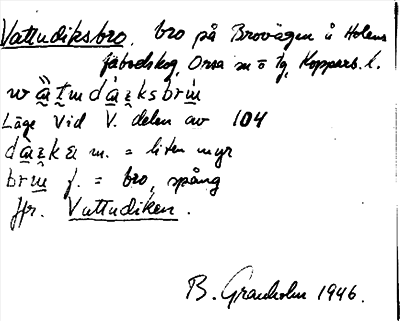 Vattudiksbro, bro på Brovägen å Holens
fäbodskog, Orsa sn o tg, Kopparb. l.
Läge vid V. delen av 104
m. = liten myr
f. = bro, spång
Jfr. Vattudiken.
B. Granholm 1946.